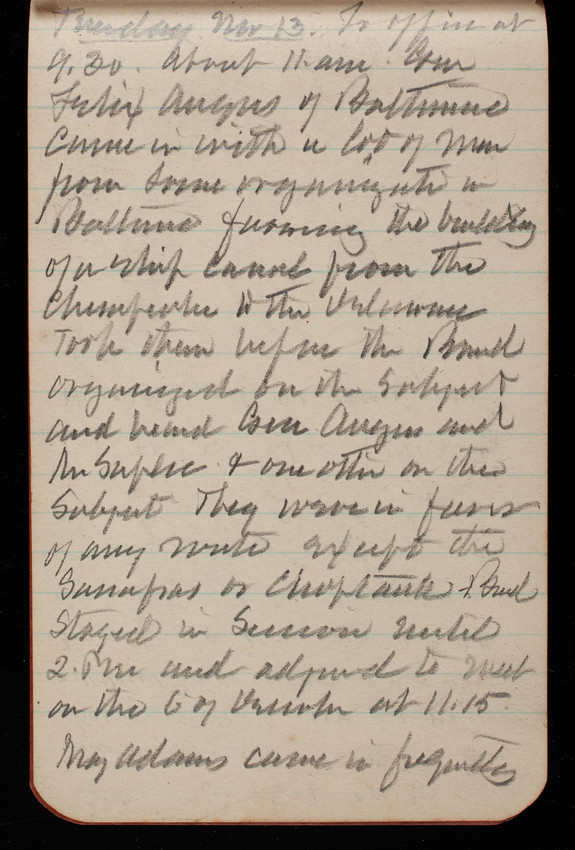 Tuesday Nov 13. To office at
9.30. About 11 am Gen
Felix Angus of Baltimore
came in with a lot of men
from some organization in
Baltimore favoring the building
of a ship canal from the
Chesapeake to the Delaware
Took them before the Board
organized on the subject
and heard Gen Angus and
Mr & one other on the
subject They were in favor
of any route except the
Sassafras or Choptank & Board
stayed in Session until
2. Pm and adjourned to meet
on the 6 of December at 11.15
Maj Adams came in frequently